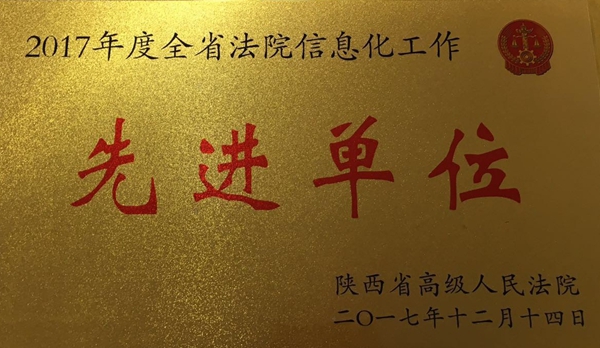 2017年度全省法院信息化工作
先进单位
陕西省高级人民法院
二〇一七年十二月十四日